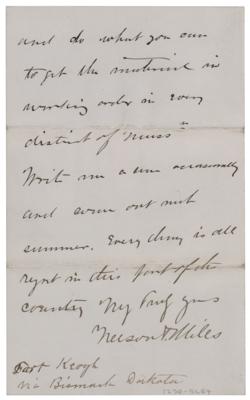 and do what you can
to get the material in
working order in every
district of Mass"
Write me a line occasionally
and come out next
summer. Everything is all
right in this part of the
country My
Nelson A Miles
Fort Keogh
via Bismarck Dakota